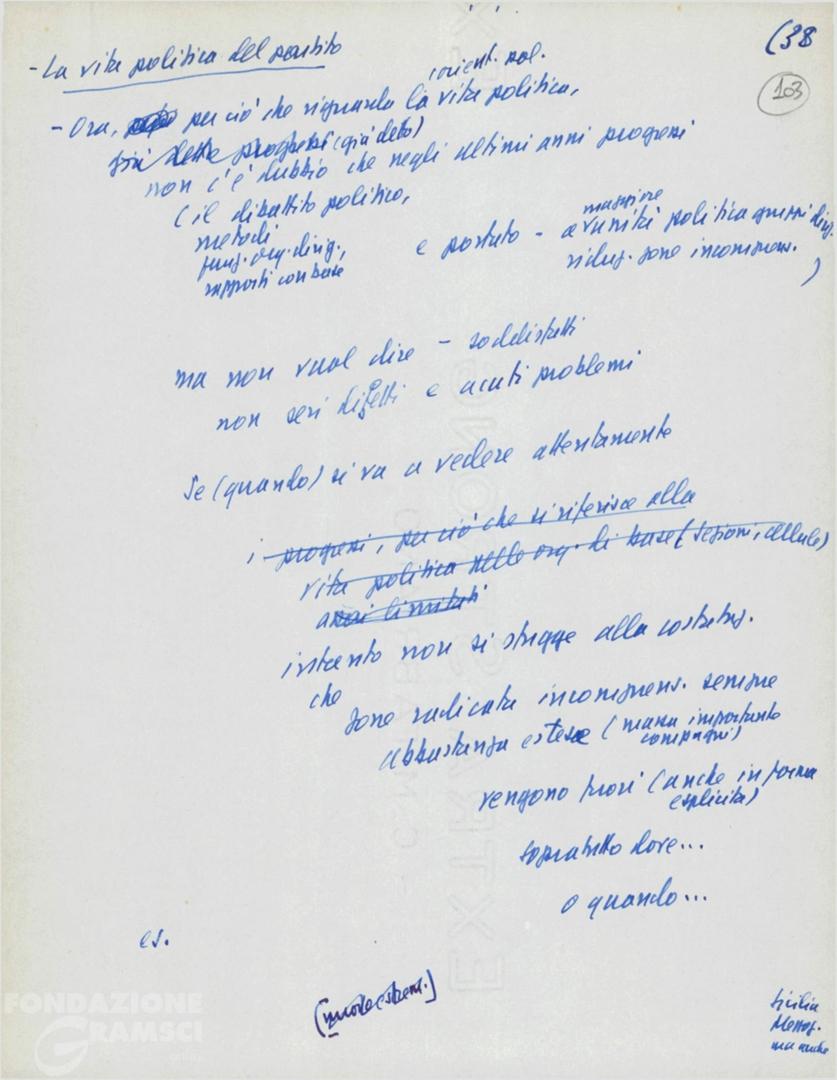 (38
103
- La vita politica del partito
orient. pol.
- Ora, per ciò che riguarda la vita politica,
già detto progressi (già detto)
non c'è dubbio che negli ultimi anni progressi
(il dibattito politico,
metodi
funz. org. dirig.,
rapporti con base
e portato - a maggiore unità politica gruppi dirig.
riduz. zone incomprens.
)
ma non vuol dire - soddisfatti
non seri difetti e acuti problemi
Se (quando) si va a vedere attentamente
i progressi, per ciò che si riferisce alla
vita politica nelle org. di base (sezioni, cellule)
assai limitati
intanto non si sfugge alla constataz.
che
zone radicate incomprens. sempre
abbastanza estese (massa importante
compagni)
vengono fuori (anche in forma
esplicita)
sopratutto dove...
o quando...
es.
Sicilia
ma anche
FONDAZIONE
GRAMSCI